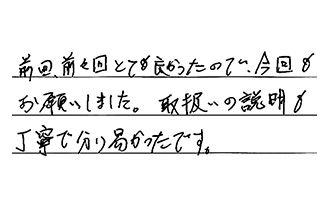 前回、前々回とても良かったので、今回も
お願いしました。取扱いの説明も
丁寧で分り易かったです。